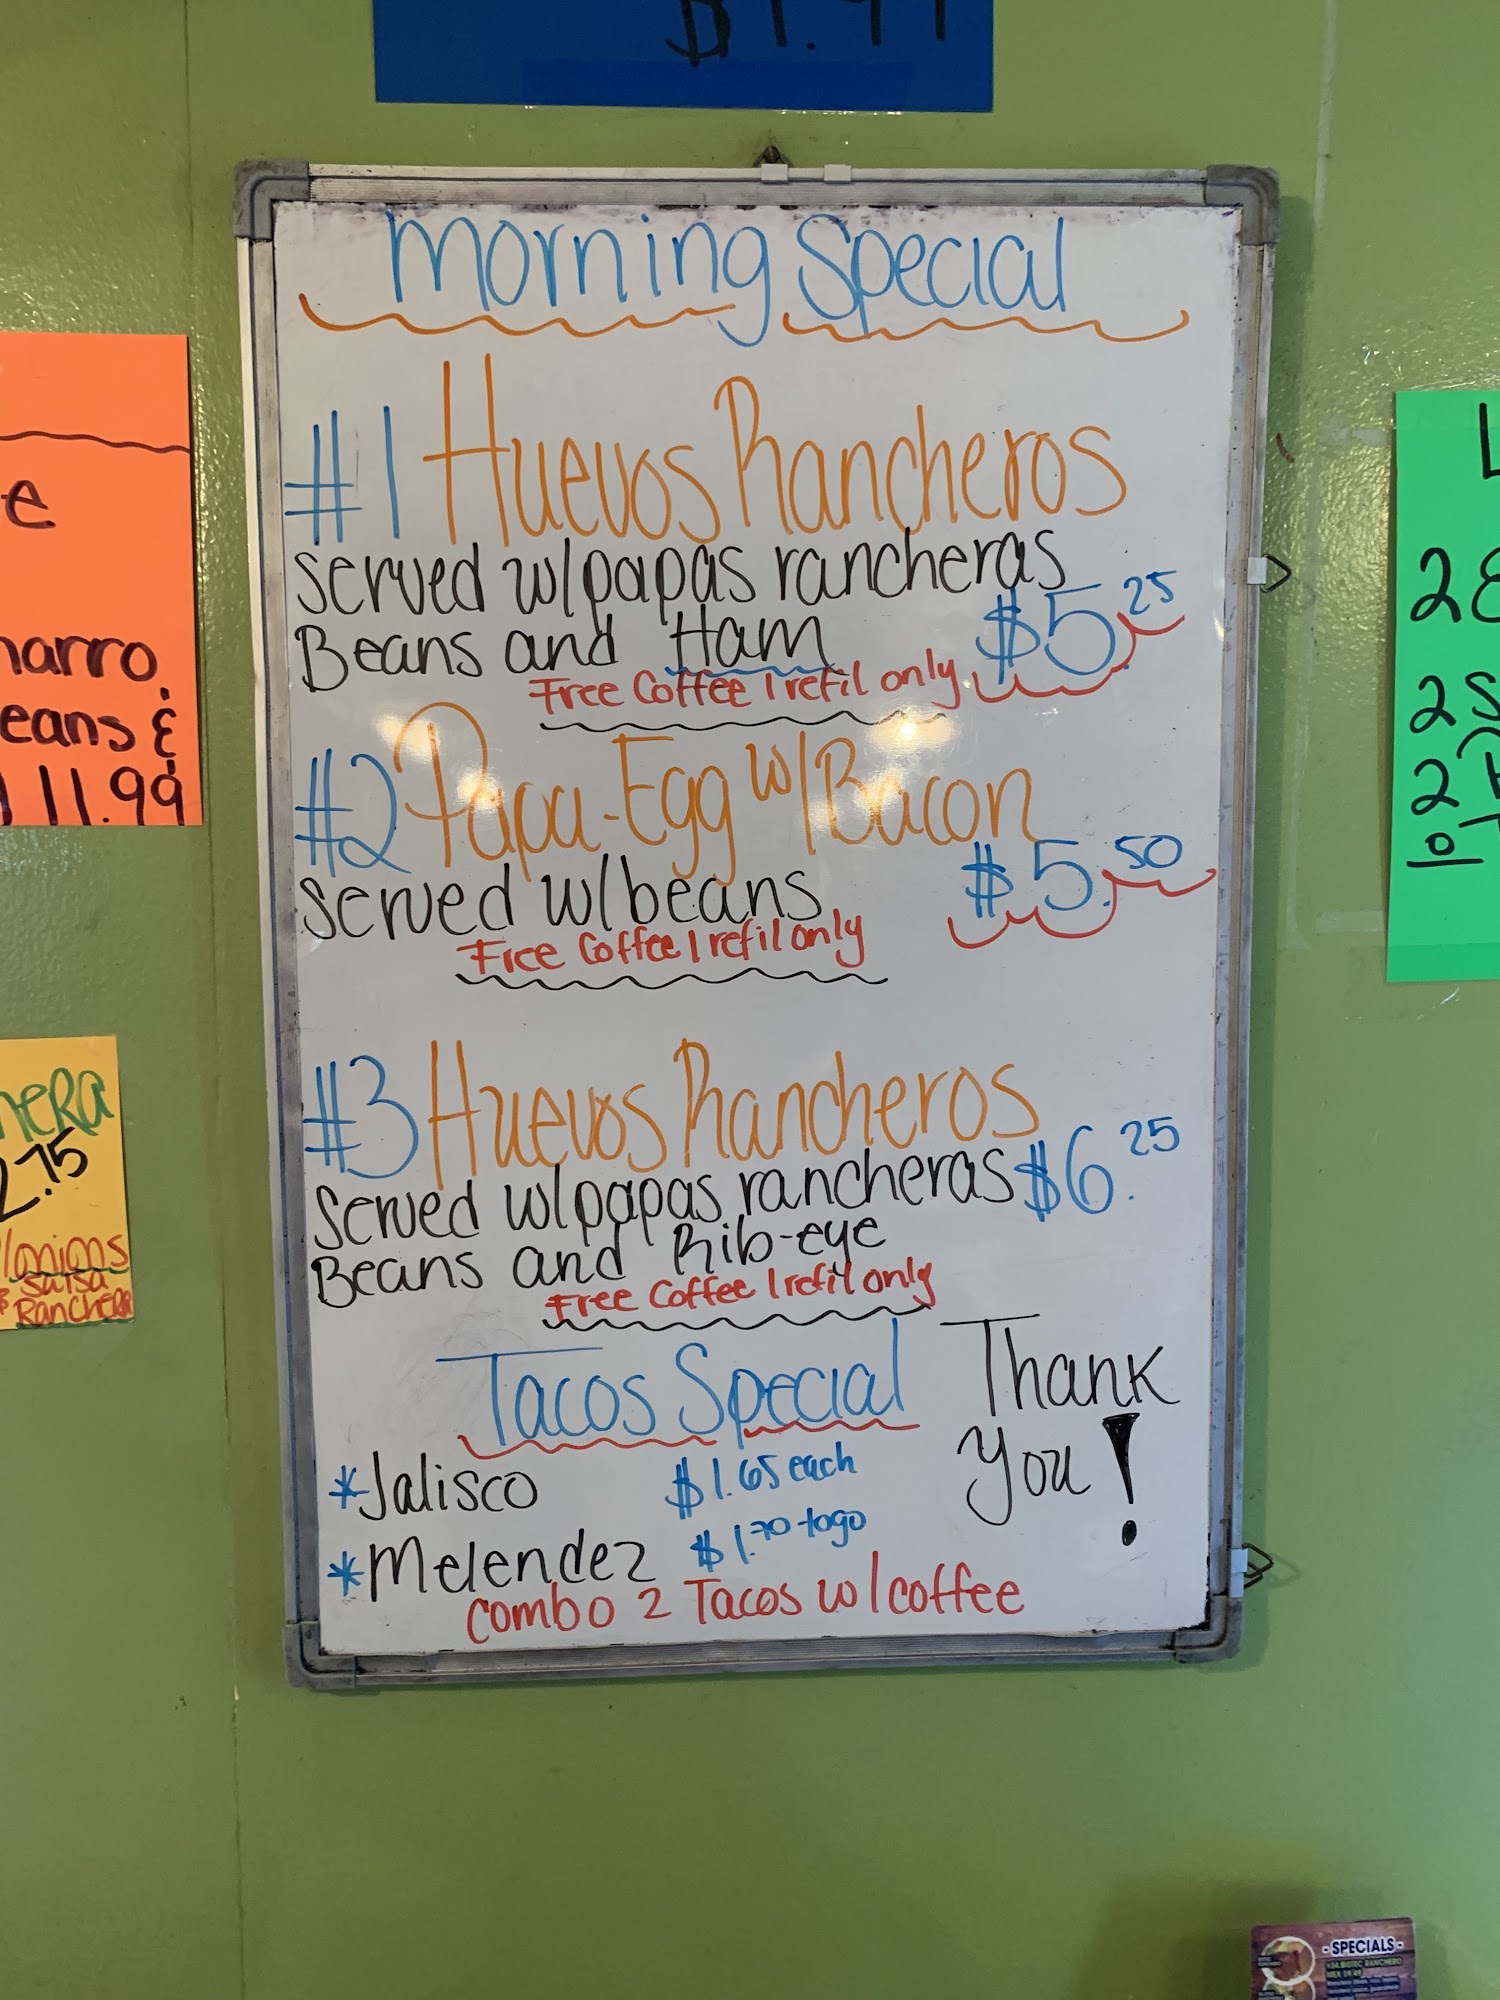 $1.99
Morning Special
#1 Huevos Rancheros
served w/papas rancheras
Beans and Ham $5.25
Free Coffee 1 refil only
#2 Papa-Egg w/Bacon
served w/beans $5.50
Free Coffee 1 refil only
#3 Huevos Rancheros
served w/papas rancheras $6.25
Beans and Rib-eye
Free Coffee 1 refil only
Tacos Special
*Jalisco $1.65 each
*Melendez $1.70 togo
combo 2 Tacos w/coffee
Thank
You!
e
harro
eans &
11.99
hera
2.75
/onions
salsa
Ranchera
2
2
2
10
- SPECIALS -